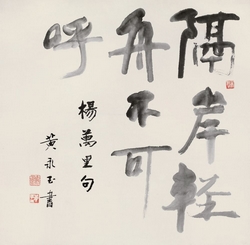 隔岸輕
舟不可
呼
楊萬里句
黃永玉書